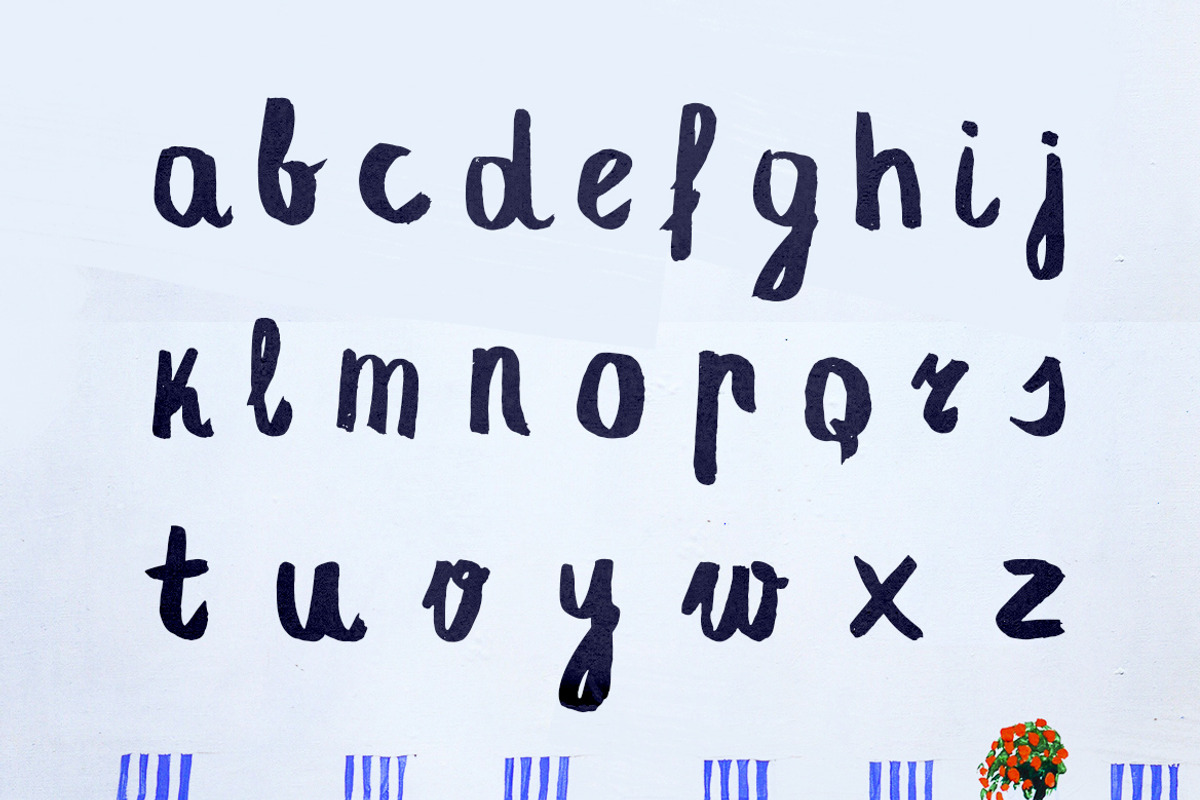 a b c d e f g h i j
k l m n o p q r s
t u v y w x z